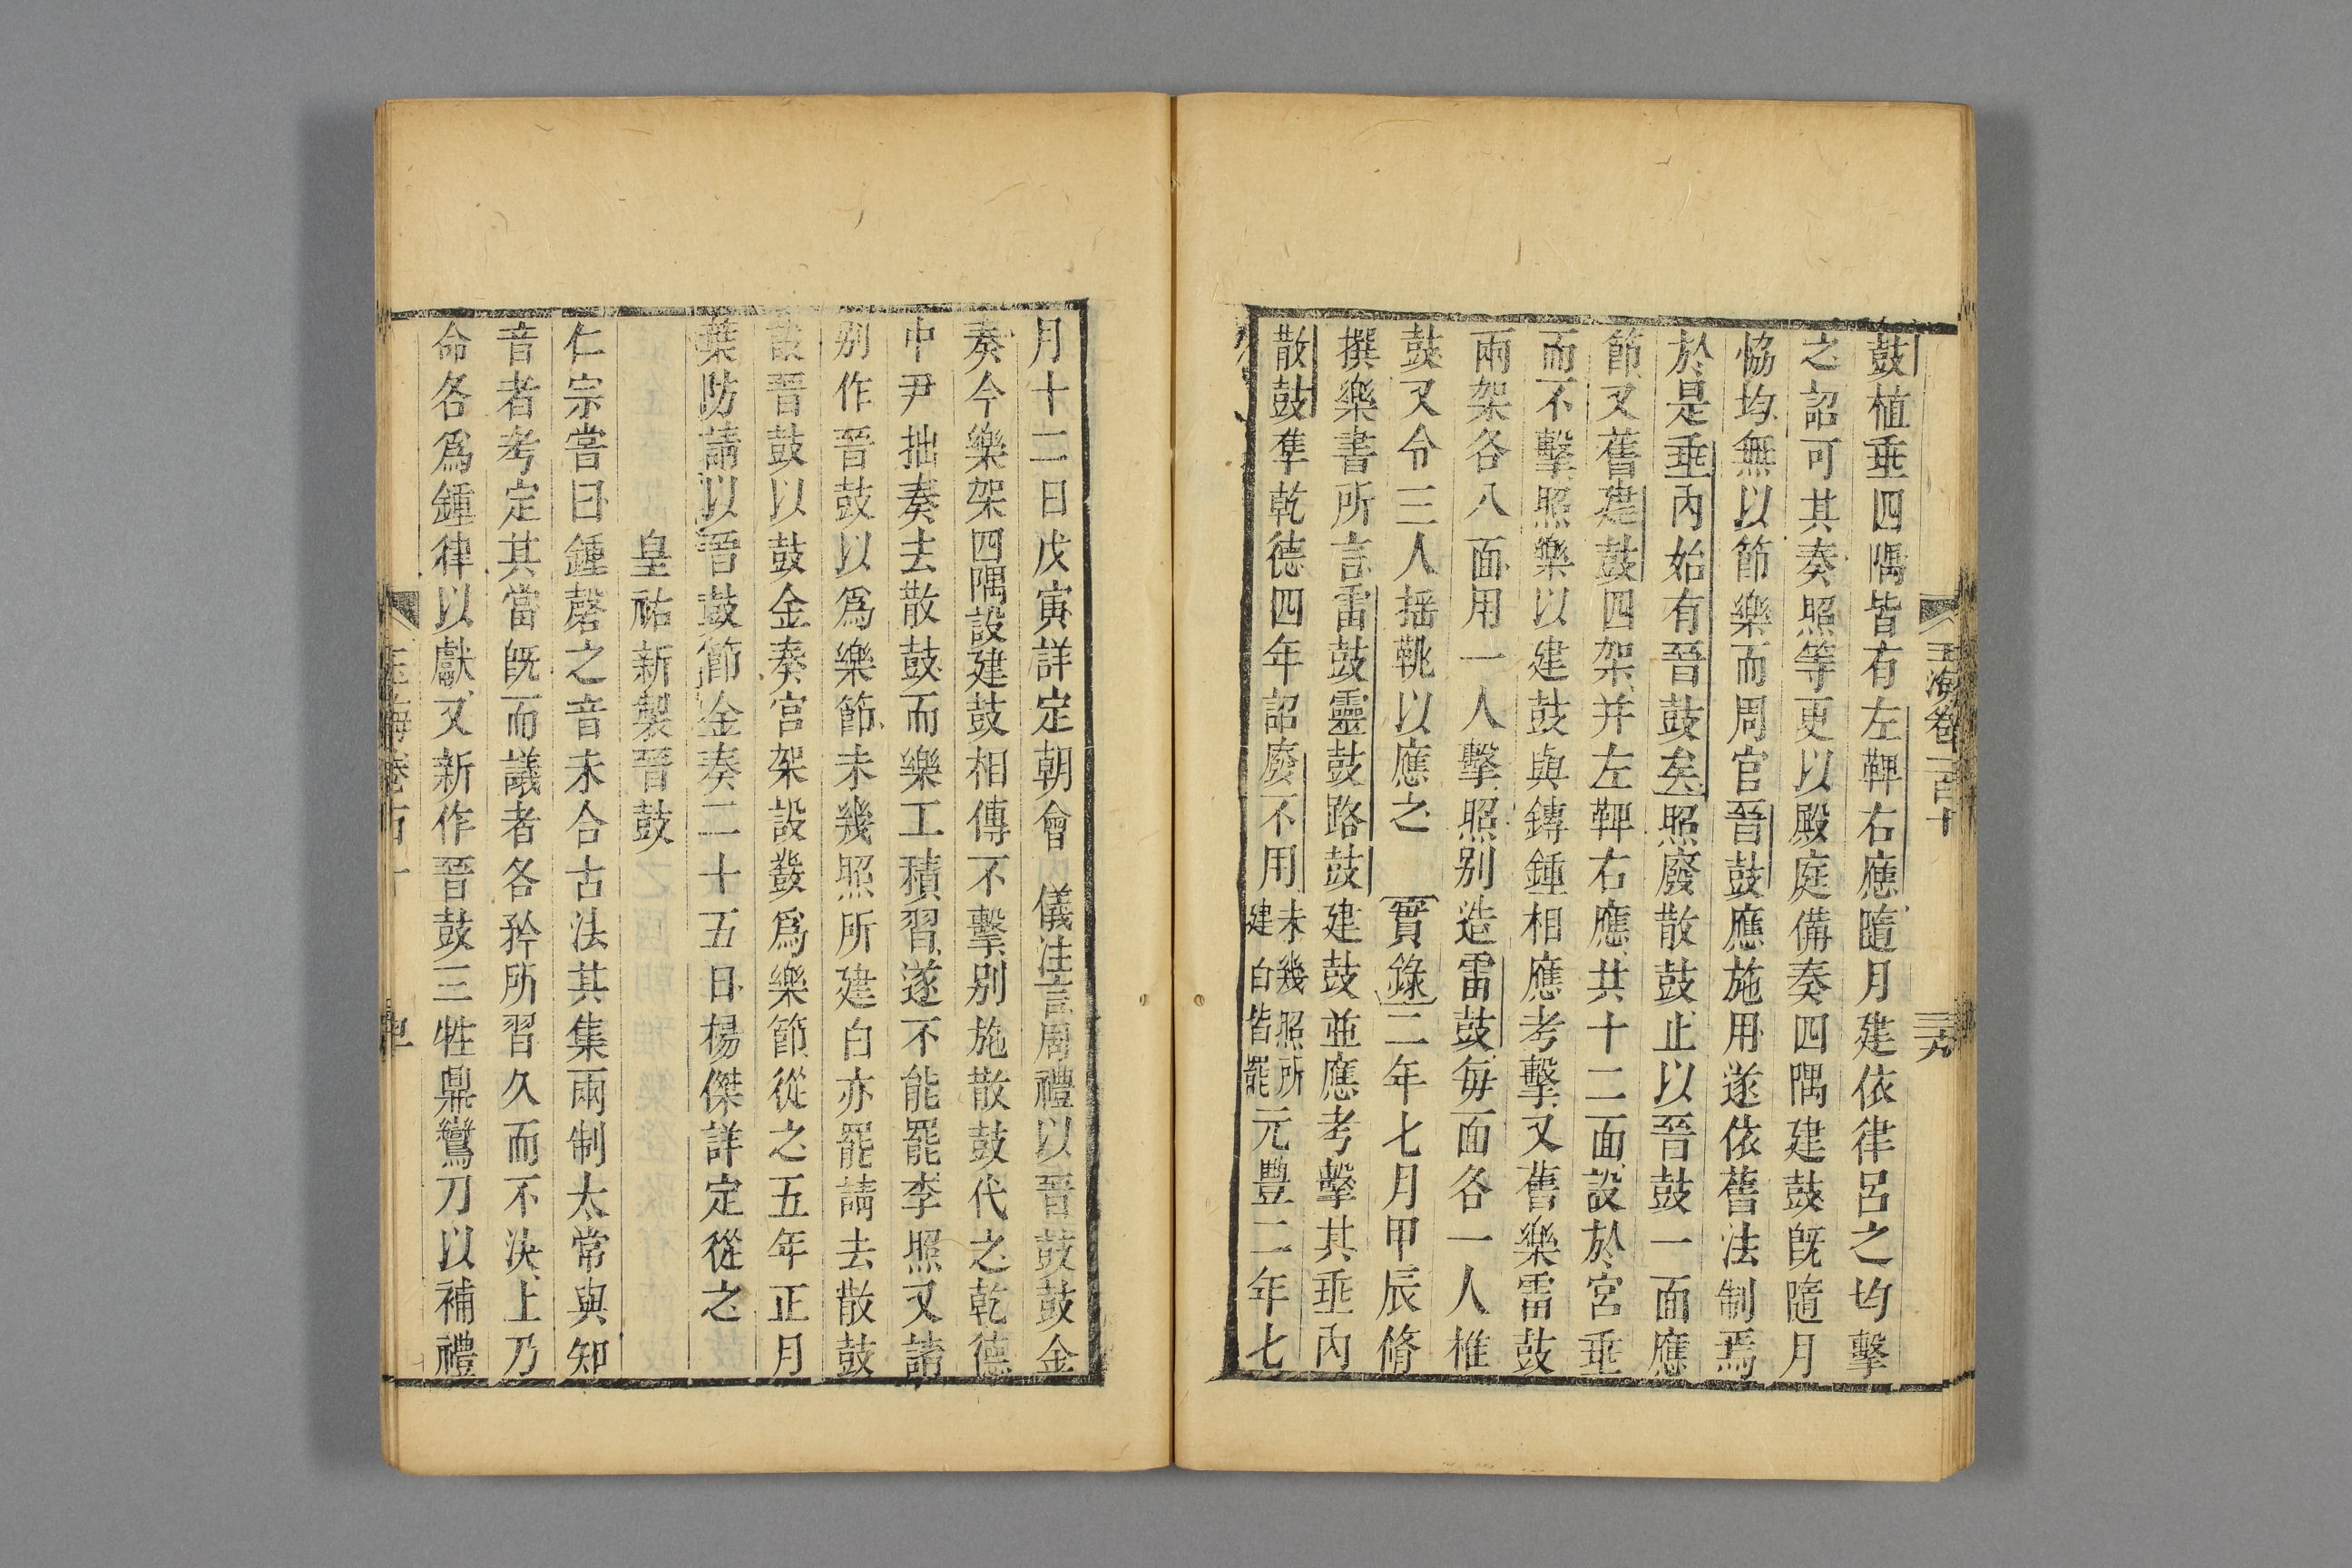 玉海卷一百十
三十九
鼓植垂四隅皆有左鞞右應隨月建依律呂之均擊
之詔可其奏照等更以殿庭備奏四隅建鼓旣隨月
恊均無以節樂而周官晉鼓應施用遂依舊法制焉
於是垂內始有晉鼓矣照廢散鼓止以晉鼓一面應
節又舊建鼓四架并左鞞右應共十二面設於宮垂
而不擊照樂以建鼓與鏄鍾相應考擊又舊樂雷鼓
兩架各八面用一人擊照别造雷鼓每面各一人椎
鼓又令三人摇鞉以應之 實錄二年七月甲辰脩
撰樂書所言雷鼓靈鼓路鼓建鼓並應考擊其垂內
散鼓隼乾德四年詔廢不用未幾照所建白皆罷元豐二年七
月十二日戊寅詳定朝會 儀注言周禮以晉鼓鼓金
奏今樂架四隅設建鼓相傳不擊别施散鼓代之乾德
中尹拙奏去散鼓而樂工積習遂不能罷李照又請
别作晉鼓以爲樂節未幾照所建白亦罷請去散鼓
設晉鼓以鼓金奏宮架設鼗爲樂節從之五年正月
葉防請以晉鼓節金奏二十五日楊傑詳定從之
皇祐新製晉鼓
仁宗嘗曰鍾磬之音未合古法其集兩制太常與知
音者考定其當旣而議者各矜所習久而不決上乃
命各爲鍾律以獻又新作晉鼓三牲鼎鸞刀以補禮
玉海卷百十